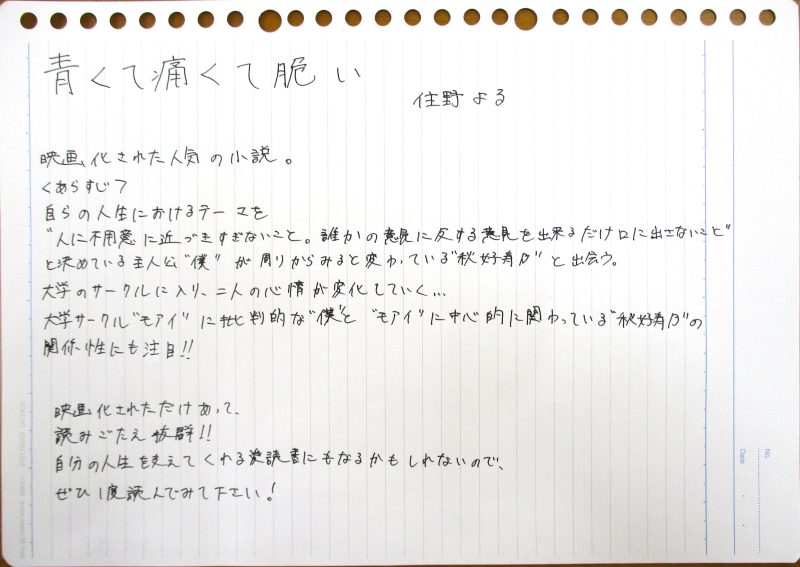 青くて痛くて脆い
住野よる
映画化された人気の小説。
<あらすじ>
自らの人生におけるテーマを
"人に不用意に近づきすぎないこと。誰かの意見に反する意見を出来るだけ口に出さないこと"
と決めている主人公"僕"が周りからみると変わっている"秋好寿乃"と出会う。
大学のサークルに入り、二人の心情が変化していく...
大学サークル"モアイ"に批判的な"僕"と"モアイ"に中心的に関わっている"秋好寿乃"の
関係性にも注目!!
映画化されただけあって、
読みごたえ抜群!!
自分の人生を支えてくれる愛読書にもなるかもしれないので、
ぜひ1度読んでみて下さい!
No.
Date